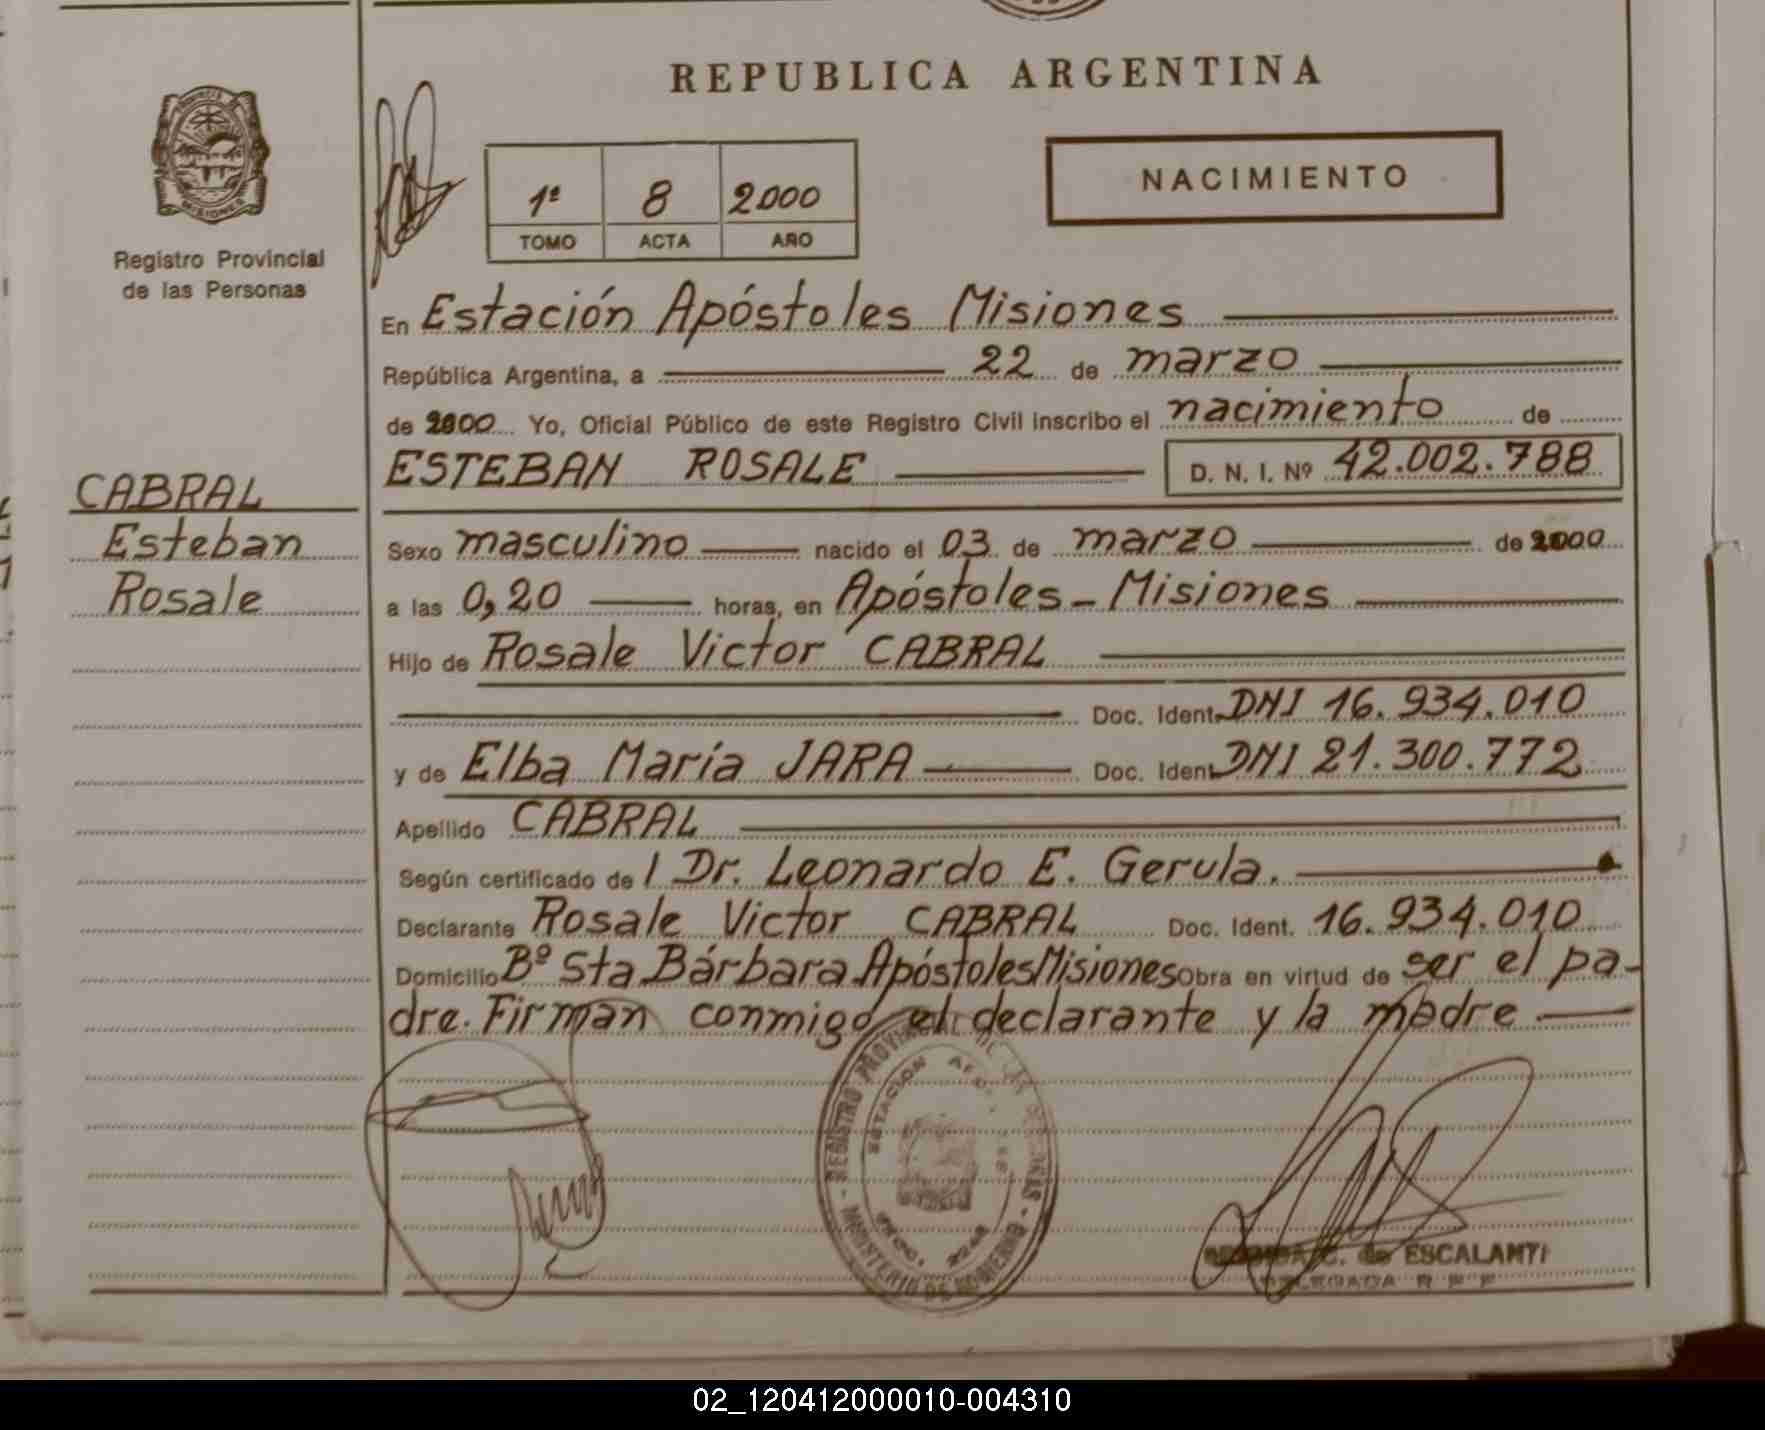 REPUBLICA ARGENTINA
PROVINCIA DE
MISIONES
Registro Provincial
de las Personas
1º 8 2000
TOMO ACTA AÑO
NACIMIENTO
En Estación Apóstoles Misiones
República Argentina, a 22 de marzo
de 2000 Yo, Oficial Público de este Registro Civil inscribo el nacimiento de
ESTEBAN ROSALE D. N. I. Nº 42.002.788
CABRAL
Esteban
Rosale
Sexo masculino nacido el 03 de marzo de 2000
a las 0,20 horas, en Apóstoles - Misiones
Hijo de Rosale Victor CABRAL
Doc. Ident. DNI 16.934.010
y de Elba María JARA Doc. Ident. DNI 21.300.772
Apellido CABRAL
Según certificado de l Dr. Leonardo E. Gerula.
Declarante Rosale Victor CABRAL Doc. Ident. 16.934.010
Domicilio Bº Sta Bárbara Apóstoles Misiones Obra en virtud de ser el pa-
dre. Firman conmigo el declarante y la madre
REGISTRO PROVINCIAL DE LAS PERSONAS - MINISTERIO DE GOBIERNO
ESTACION
C. de ESCALANTE
DELEGADA R P P
02_120412000010-004310